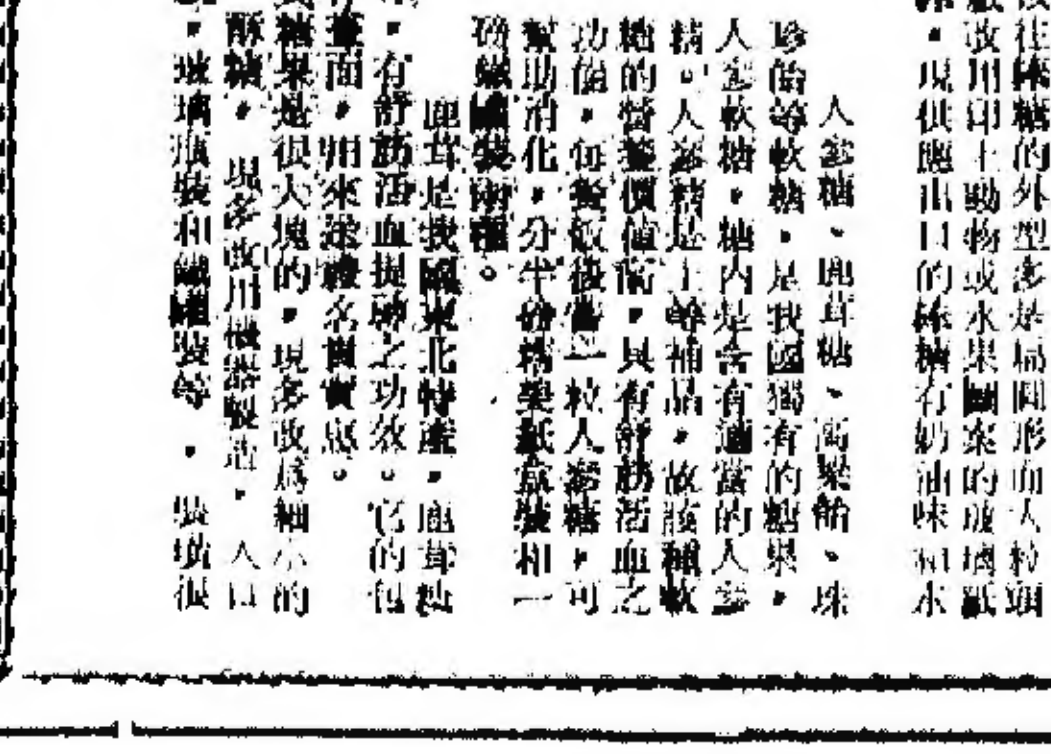 往硃糖的外型多是扁圓形而大粒頭
改用印上動物或水果圖案的玻璃紙
現供應出口的硃糖有奶油味和水
人蔘糖、鹿茸糖、高粱飴、珠
珍飴等軟糖，是我國獨有的糖果，
人蔘軟糖，糖內是含有適當的人蔘
精。人蔘精是上等補品，故該種軟
糖的營養價值高，具有舒筋活血之
功能，每餐飯後嚐一粒人蔘糖，可
幫助消化，分半份精美紙盒裝和一
磅鐵罐裝兩種。
鹿茸是我國東北特產，鹿茸糖
，有舒筋活血提神之功效。它的包
面，用來送禮名貴實惠。
糖果是很大塊的，現多改爲細小的
酥糖，現多改用機器製造，入口
，玻璃瓶裝和鐵罐裝等，裝璜很